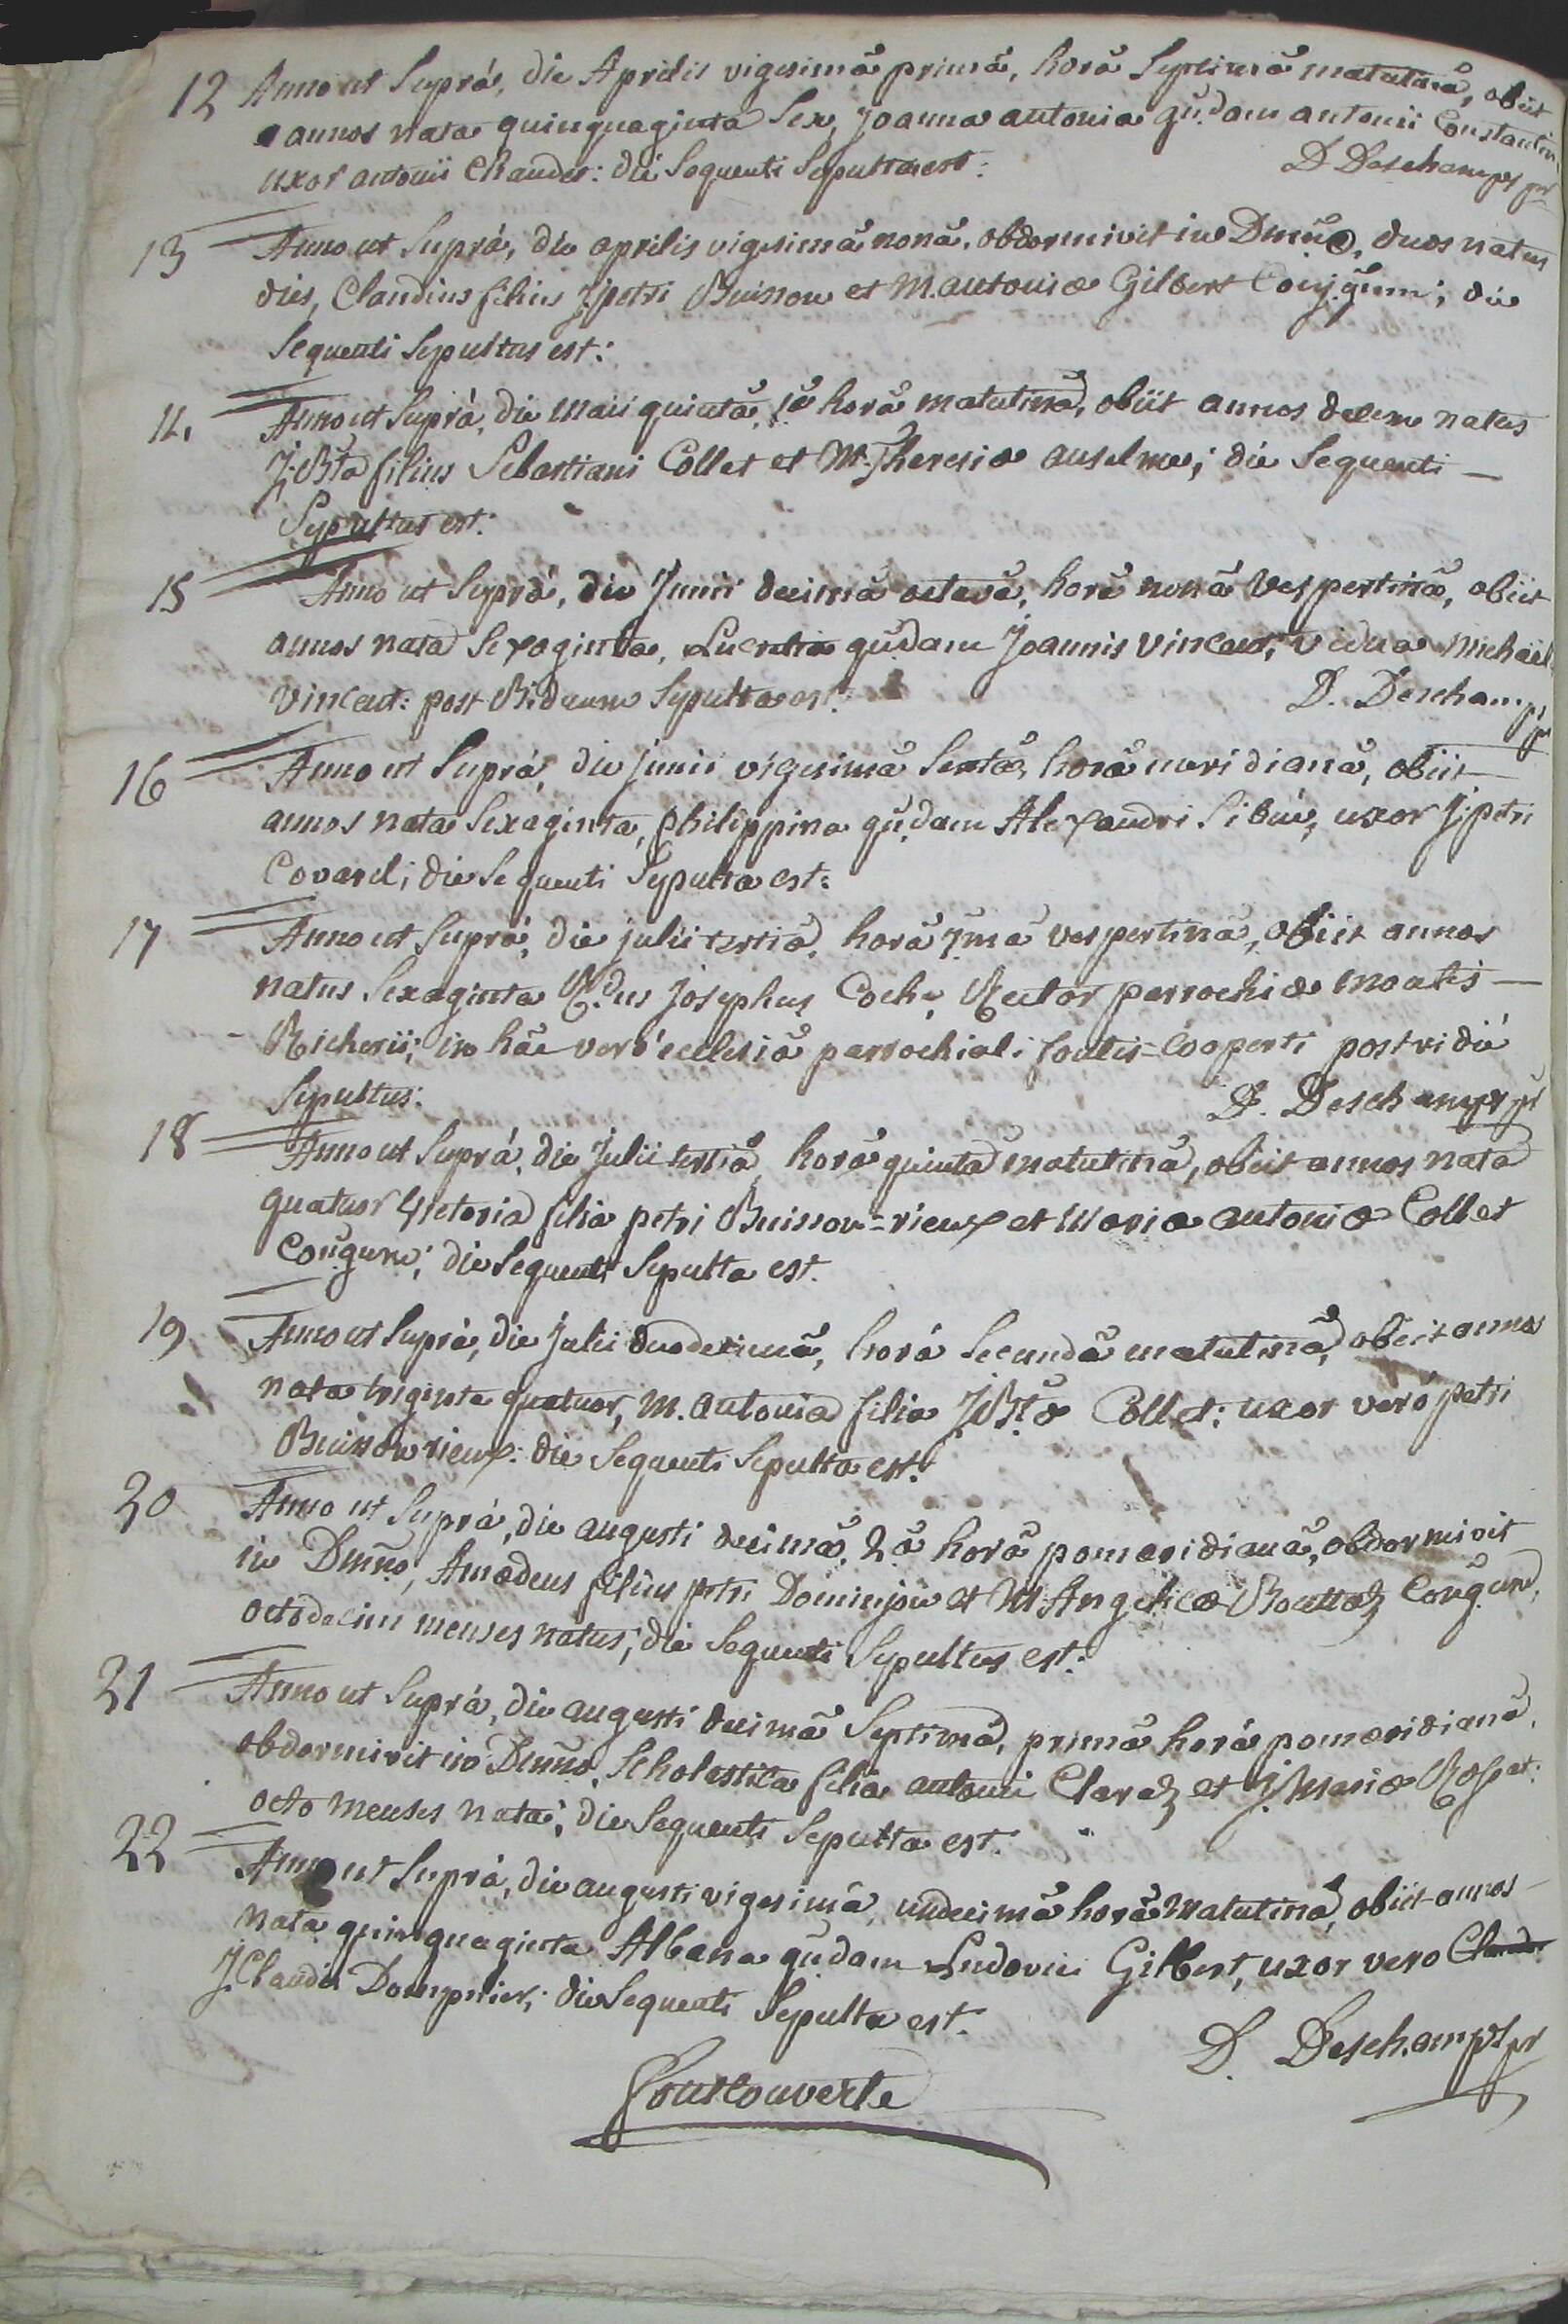 12 Anno ut Suprà, die Aprilis vigesimâ primâ, horâ Septimâ matutinâ, obiit
annos nata quinquaginta Sex, Joanna antonia qūdam antonii Constantin
uxor antonii Chaudet: die Sequenti Sepulta est: D Deschamps pr
13 Anno ut Suprà, die aprilis vigesimâ nonâ, obdormivit in Dmño, duos natus
dies, Claudius filius J. petri Buisson et M. antoniæ Gilbert Conj.gum; die
Sequenti Sepultus est:
14 Anno ut Suprà, die Maii quintâ, 1â horâ matutinâ, obiit annos decem natus
J. Bta filius Sebastiani Collet et M. Theresiæ anselme; die Sequenti —
Sepultus est:
15 Anno ut Suprà, die Junii decimâ octavâ, horâ nonâ Vespertinâ, obiit
annos nata Sexaginta, Lucretia qūdam Joannis Vincent, vidua Michaël
Vincent: post Biduum Sepulta est: D. Deschamps pr
16 Anno ut Suprà, die junii vigesimâ Sextâ, horâ meridianâ, obiit
annos nata Sexaginta, Philippina qūdam Alexandri Sibué, uxor J: petri
Covarel; die Sequenti Sepulta est:
17 Anno ut Suprà, die julii tertiâ, horâ 7mâ vespertinâ, obiit annos
natus Sexaginta R.dus josephus Coche, Rector parrochiæ Montis —
Richerii; in hâc verò ecclesiâ parrochiali fontis=Cooperti postridiè
Sepultus: D. Deschamps pr
18 Anno ut Suprà, die Julii tertiâ, horâ quintâ matutinâ, obiit annos nata
quatuor Victoria filia petri Buisson=rieux et Mariæ antoniæ Collet
Conj.gum; die Sequenti Sepulta est.
19 Anno ut Suprà, die julii duodecimâ, horâ Secundâ matutinâ, obiit annos
nata triginta quatuor, M. antonia filia J. Btæ Collet; uxor verò petri
Buisson rieux: die Sequenti Sepulta est:
20 Anno ut Suprà, die augusti decimâ, 2â horâ pomeridianâ, obdormivit
in Dmño, Amedeus filius petri Dominjon et M. Angelicæ Bouttaz Conj.gum,
octodecim menses natus; die Sequenti Sepultus est:
21 Anno ut Suprà, die augusti decimâ Septimâ, primâ horâ pomeridianâ,
obdormivit in Dmño, Scholastica filia antonii Claraz et J. Mariæ Rosset:
octo menses nata; die Sequenti Sepulta est.
22 Anno ut Suprà, die augusti vigesimâ, undecimâ horâ Matutinâ, obiit annos
nata quinquaginta Albana qūdam Ludovici Gilbert, uxor vero
J. Claudii Dompnier; die Sequenti Sepulta est.
D. Deschamps pr
Fontcouverte